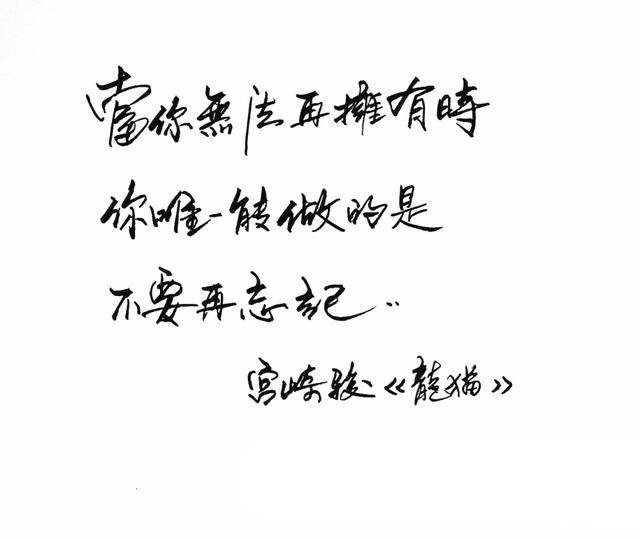 當你無法再擁有時
你唯一能做的是
不要再忘記..
宮崎駿《龍猫》